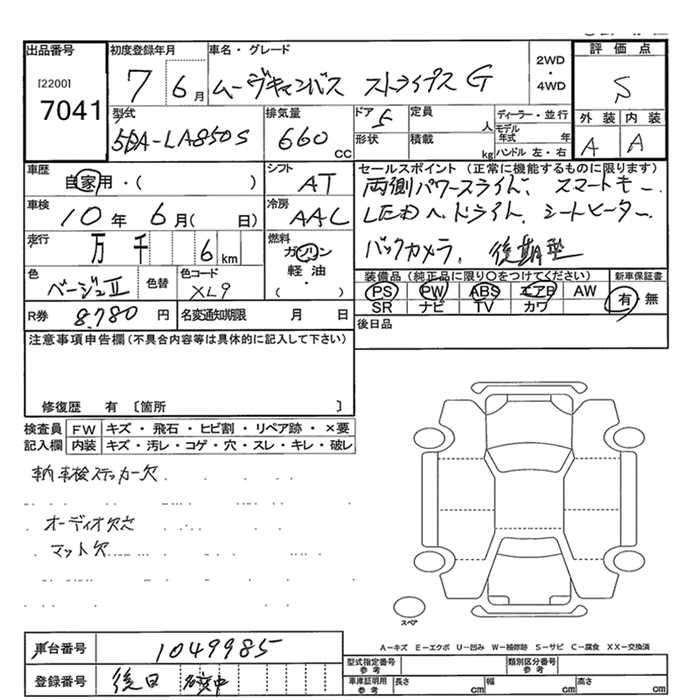 出品番号 初度登録年月 車名・グレード 2WD ・ 4WD 評価点
[2200] 7041 7 6月 ムーヴキャンバス ストライプス G S
型式 排気量 ドア 定員 ディーラー・並行 外装 内装
5BA-LA850S 660 CC 5 人 モデル年式 年 A A
形状 積載 kg ハンドル 左・右
車歴 シフト セールスポイント (正常に機能するものに限ります)
自家用・( ) AT 両側パワースライド、スマートキー、
車検 冷房
10年 6月( 日) AAC LEDヘッドライト、シートヒーター、
走行 燃料
万 千 6 km ガソリン バックカメラ、後期型
軽油・( )
色 色替 色コード 装備品 (純正品に限り○をつけてください) 新車保証書
ベージュII XL9 PS PW ABS エアB AW 有・無
SR ナビ TV カワ
R券 8,780円 名変通知期限 月 日 後日品
注意事項申告欄(不具合内容等は具体的に記入して下さい)
修復歴 有 〔箇所 〕
検査員 FW キズ・飛石・ヒビ割・リペア跡・×要
記入欄 内装 キズ・汚レ・コゲ・穴・スレ・キレ・破レ
車検ステッカー欠
オーディオ欠
マット欠
スペア
A－キズ E－エクボ U－凹み W－補修跡 S－サビ C－腐食 XX－交換済
車台番号 1049985
型式指定番号 参考 類別区分番号 参考
登録番号 後日
車庫証明用 参考 長さ cm 幅 cm 高さ cm